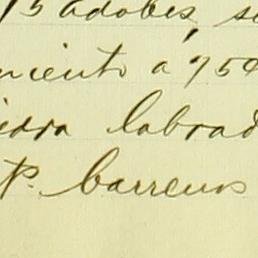 75 adobes, se
miento a 950
iedra labrad
P. barrenos